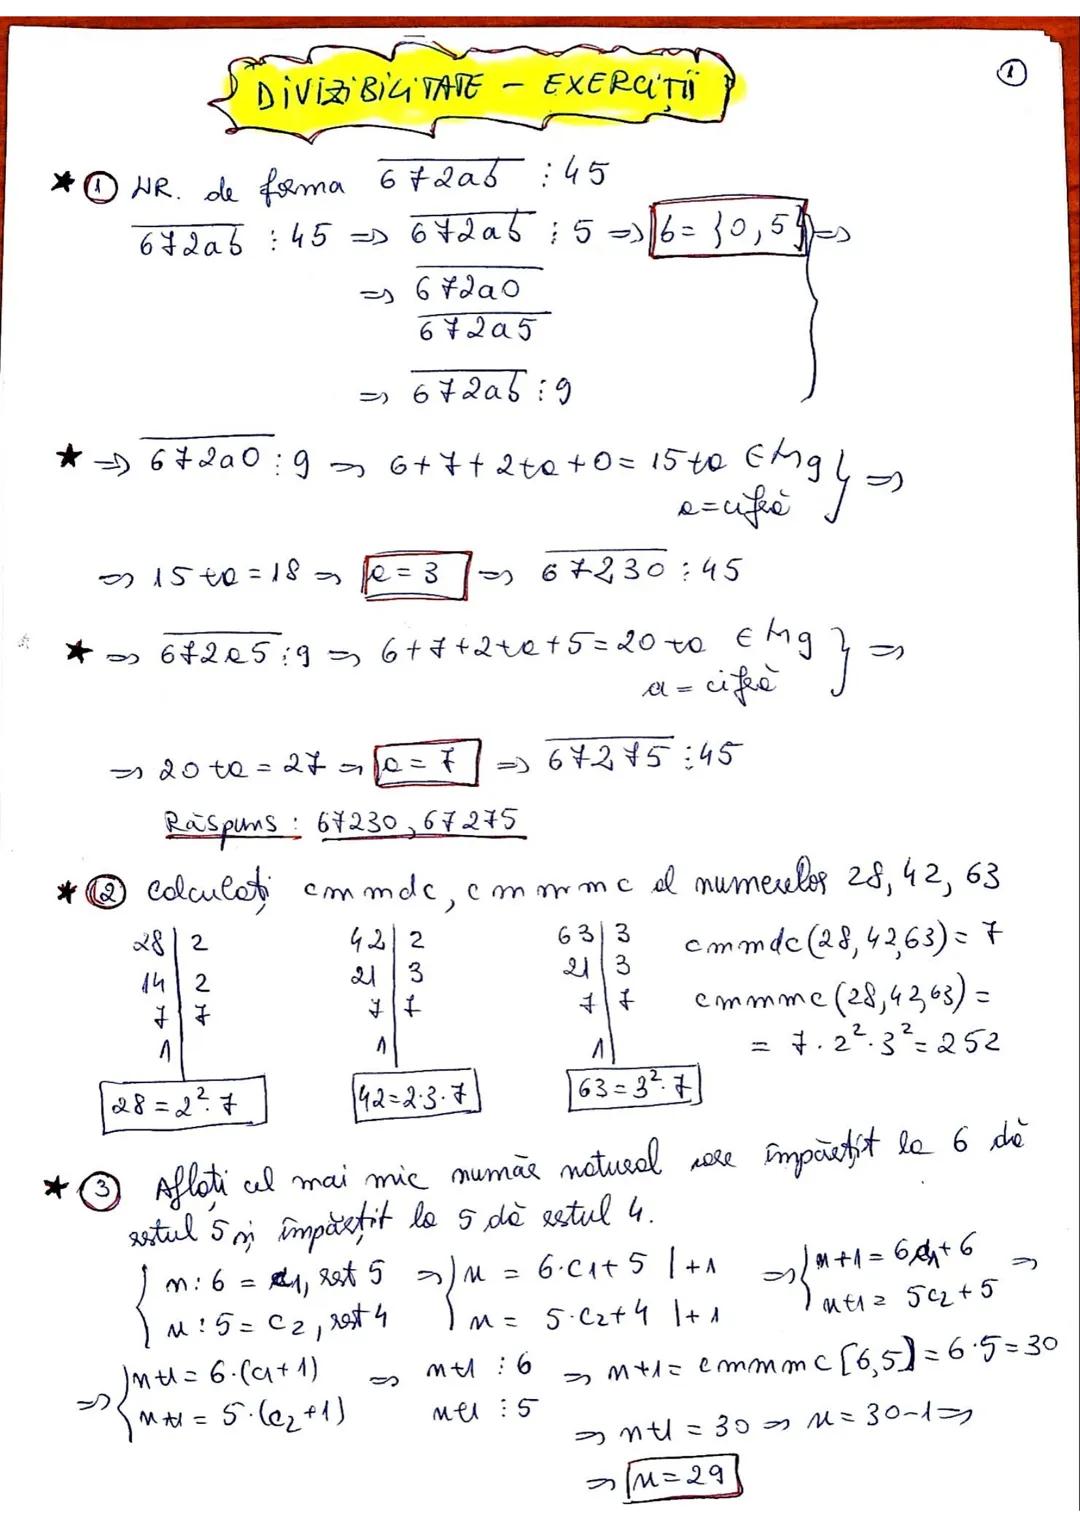 DIVIZIBILITATE - EXERCIȚII
1
★ 1 NR. de forma 672ab ⋮ 45
672ab ⋮ 45 => 672ab ⋮ 5 => b = {0,5} =>
=> 672a0
672a5
=> 672ab ⋮ 9
★ => 672a0 ⋮ 9 => 6+7+2+a+0 = 15+a ∈ M9 } =>
a = cifră
=> 15+a = 18 => a = 3 => 67230 ⋮ 45
★ => 672a5 ⋮ 9 => 6+7+2+a+5 = 20+a ∈ M9 } =>
a = cifră
=> 20+a = 27 => a = 7 => 67275 ⋮ 45
Răspuns : 67230, 67275
★ 2 Calculați cmmdc, cmmmc al numerelor 28, 42, 63
28 | 2 42 | 2 63 | 3 cmmdc (28,42,63) = 7
14 | 2 21 | 3 21 | 3
7 | 7 7 | 7 7 | 7 cmmmc (28,42,63) =
1 | 1 | 1 | = 7 · 2² · 3² = 252
28 = 2² · 7 42 = 2·3·7 63 = 3² · 7
★ 3 Aflați cel mai mic număr natural care împărțit la 6 dă
restul 5 și împărțit la 5 dă restul 4.
{ n : 6 = c1, rest 5 => { n = 6·c1+5 |+1 => { n+1 = 6c1+6 =>
n : 5 = c2, rest 4 n = 5·c2+4 |+1 n+1 = 5c2+5
=> { n+1 = 6·(c1+1) => n+1 ⋮ 6 => n+1 = cmmmc [6,5] = 6·5 = 30
n+1 = 5·(c2+1) n+1 ⋮ 5
=> n+1 = 30 => n = 30-1 =>
=> n = 29